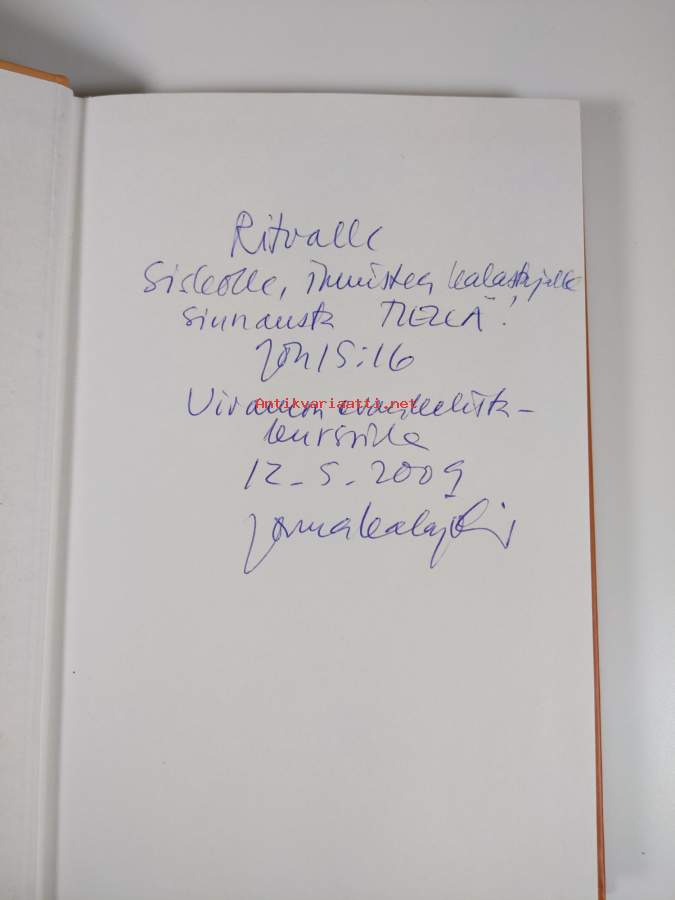 Ritvalle
Siskolle, ihmisten kalastajalle
siunausta TIELLÄ!
Joh 15:16
evankelista-
kurssilla
12-5-2009
Jorma Kalajoki
Antikvariaatti.net